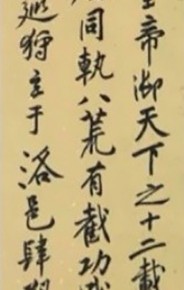 帝御天下之十二載
同軌八荒有截功
狩至于洛邑肆